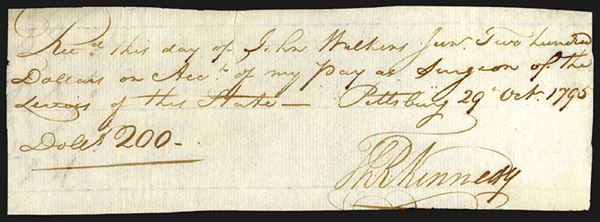 Rec.d this day of John Wilkins Junr. Two hundred
Dollars on Acct. of my Pay as Surgeon of the
Levies of this State — Pittsburg 29 Oct. 1795
Dolls 200-
Thk Kennedy